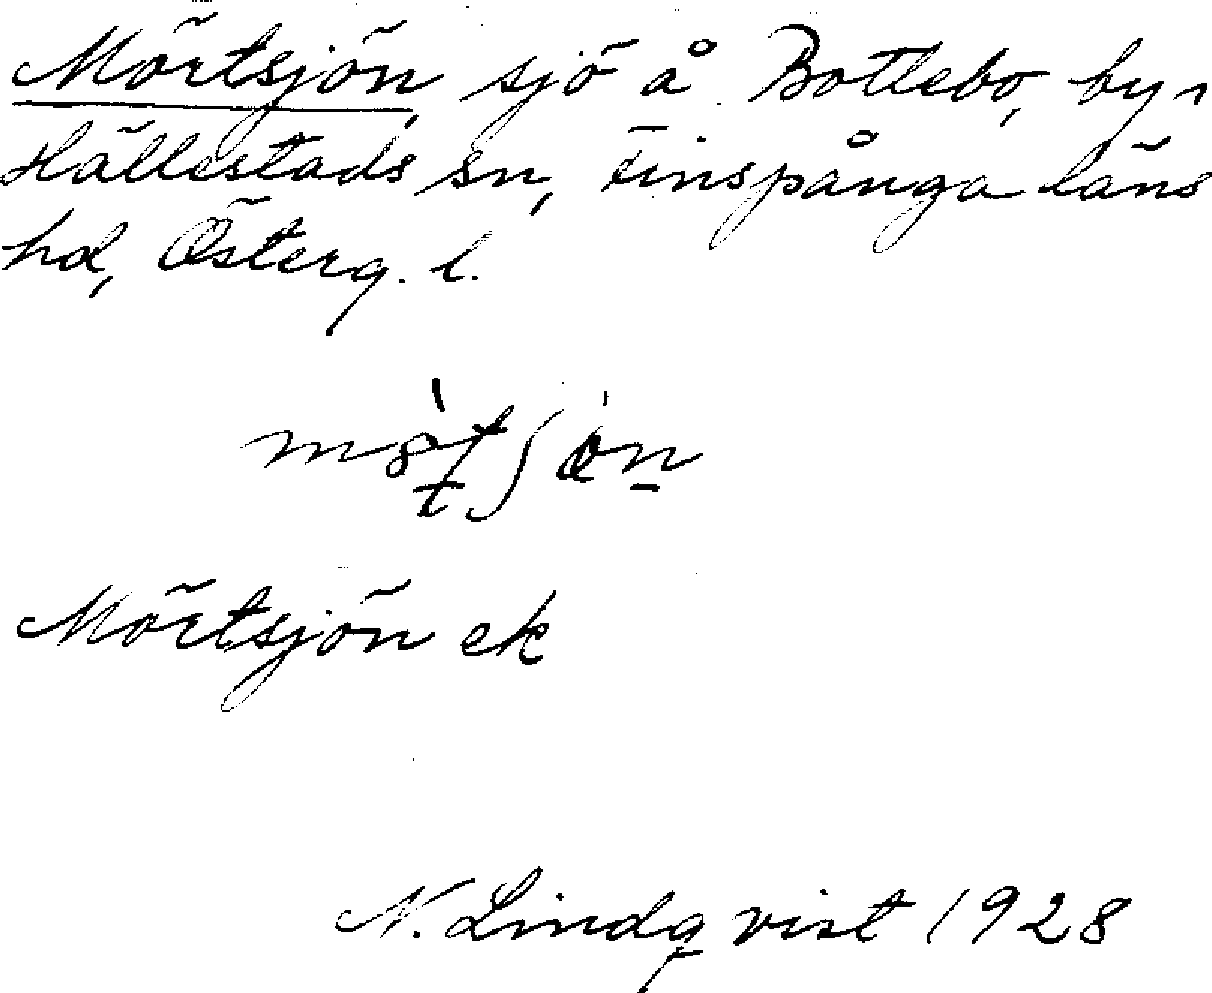 Mörtsjön, sjö å Botlebo, by i
Hällestads sn, Finspånga läns
hd, Österg. l.
Mörtsjön ek
N. Lindqvist 1928